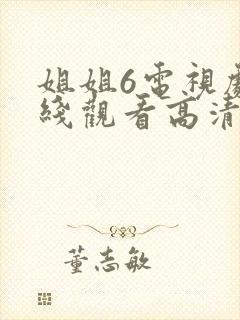 姐姐6電視
綫觀看高清
董志敏